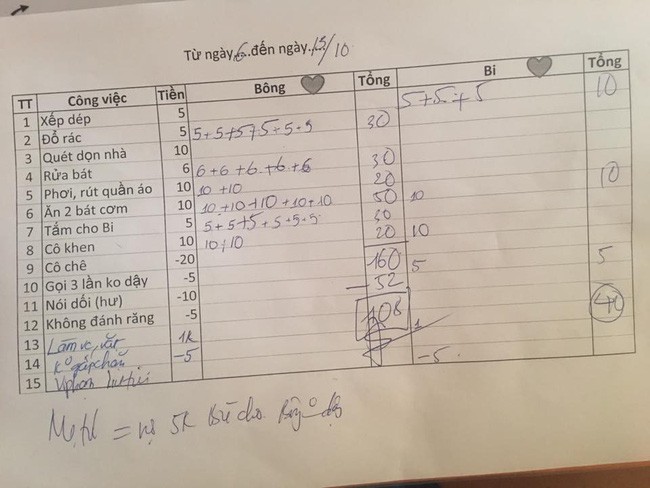 Từ ngày 6 đến ngày 13/10
TT Công việc Tiền Bông Tổng Bi Tổng
1 Xếp dép 5 5+5+5 10
2 Đổ rác 5 5+5+5+5+5+5 30
3 Quét dọn nhà 10
4 Rửa bát 6 6+6+6+6+6 30
5 Phơi, rút quần áo 10 10+10 20 10
6 Ăn 2 bát cơm 10 10+10+10+10+10 50 10
7 Tắm cho Bi 5 5+5+5+5+5+5 30
8 Cô khen 10 10+10 20 10
9 Cô chê -20
10 Gọi 3 lần ko dậy -5 160 5 5
11 Nói dối (hư) -10 -52
12 Không đánh răng -5 108 40
13 1k 1
14 -5
15 -5
= 5k cho